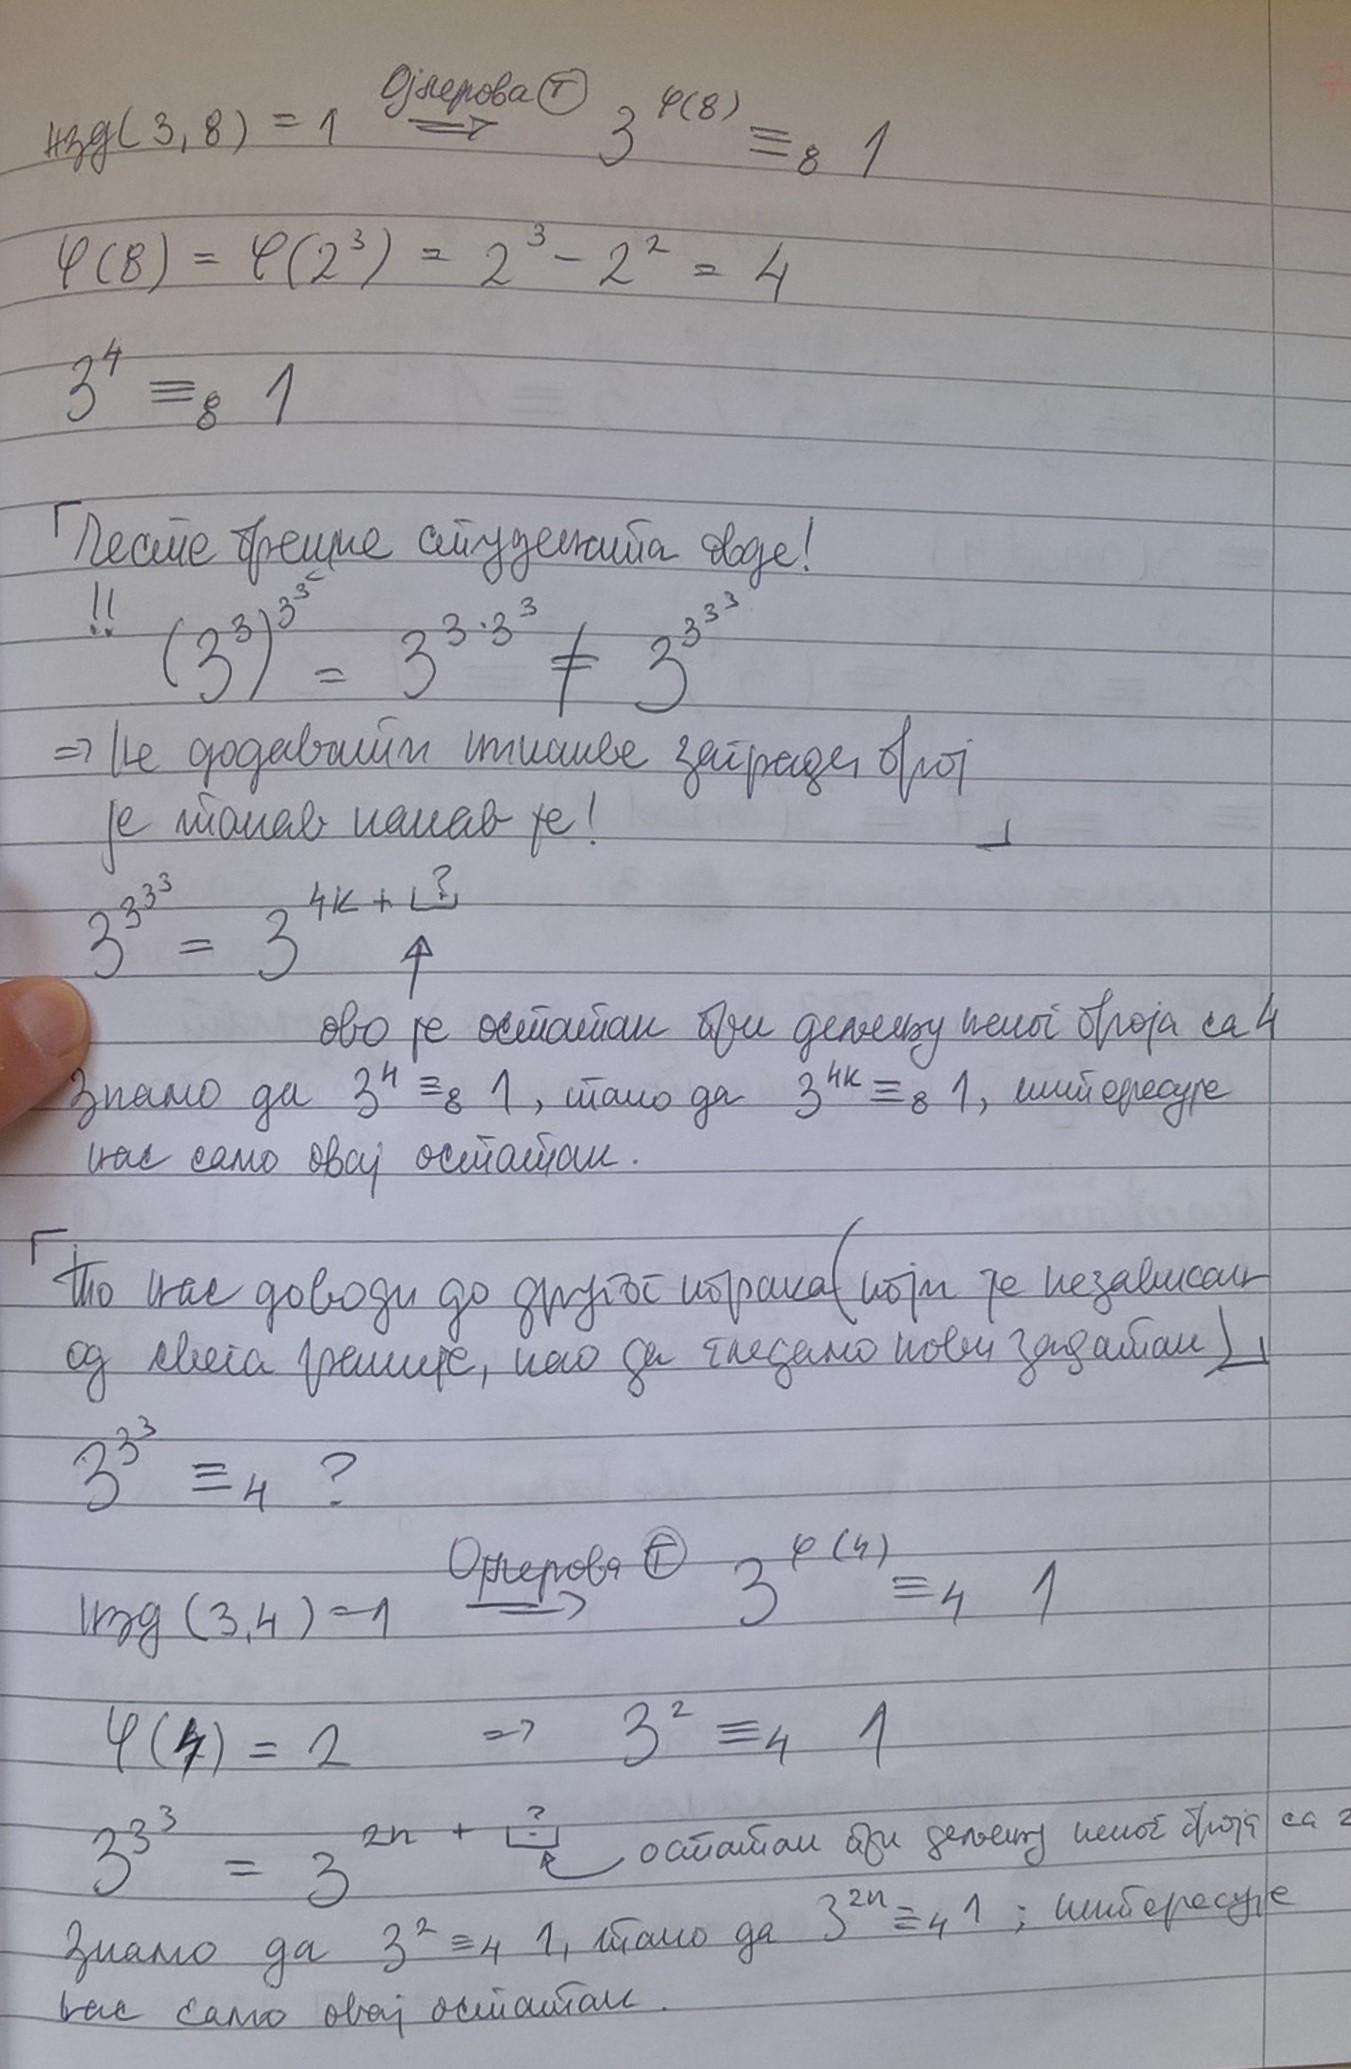 нзд(3,8) = 1 Ојлерова Т ⟹ 3^φ(8) ≡₈ 1
φ(8) = φ(2³) = 2³ - 2² = 4
3⁴ ≡₈ 1
⌜Честе грешке студената овде!
!! (3^3)^3^3 = 3^(3·3^3) ≠ 3^3^3^3
⇒ Не додавати никакве заграде, број
је такав какав је! ⌟
3^3^3^3 = 3^(4k + ?)
↑
ово је остатак при дељењу неког броја са 4
Знамо да 3⁴ ≡₈ 1, тако да 3^4k ≡₈ 1, интересује
нас само овај остатак.
⌜То нас доводи до другог корака (који је независан
од свега раније, као да гледамо нови задатак)⌟
3^3^3 ≡₄ ?
нзд(3,4) = 1 Ојлерова Т ⟹ 3^φ(4) ≡₄ 1
φ(4) = 2 ⇒ 3² ≡₄ 1
3^3^3 = 3^(2n + ?) остатак при дељењу неког броја са 2
Знамо да 3² ≡₄ 1, тако да 3^2n ≡₄ 1; интересује
нас само овај остатак.